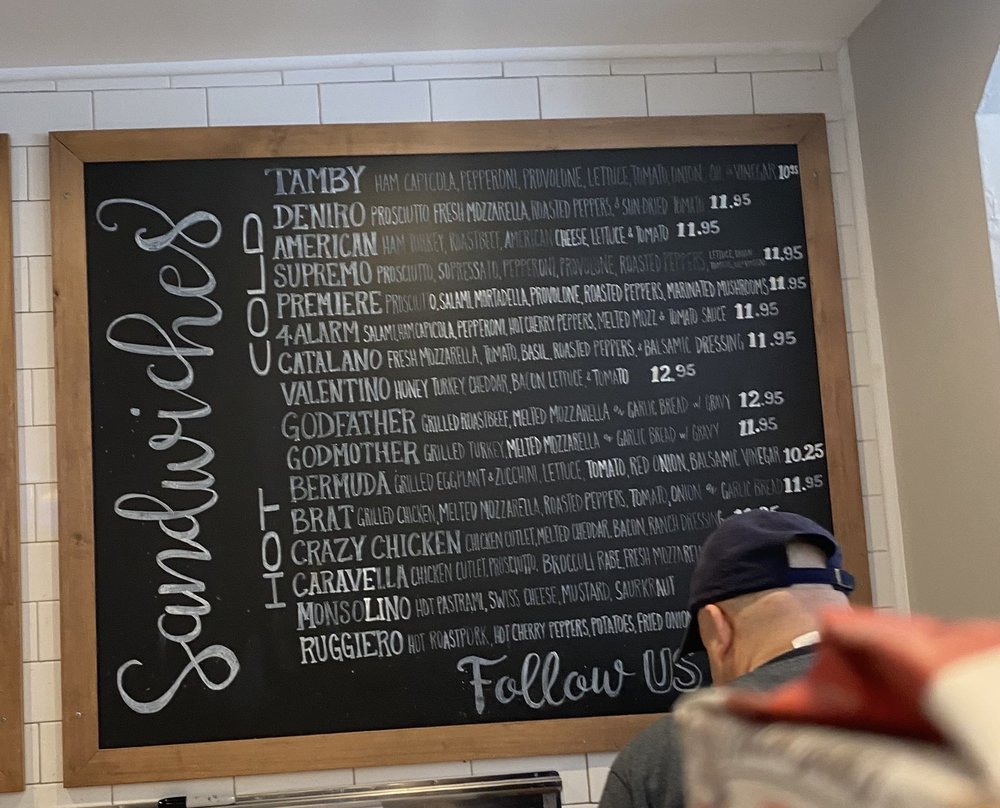 Sandwiches
COLD
TAMBY HAM CAPICOLA, PEPPERONI, PROVOLONE, LETTUCE, TOMATO, ONION, OIL & VINEGAR 10.95
DENIRO PROSCIUTTO FRESH MOZZARELLA, ROASTED PEPPERS, & SUN-DRIED TOMATO 11.95
AMERICAN HAM TURKEY, ROASTBEEF, AMERICAN CHEESE, LETTUCE & TOMATO 11.95
SUPREMO PROSCIUTTO, SOPRESSATO, PEPPERONI, PROVOLONE, ROASTED PEPPERS, LETTUCE, ONION 11.95
PREMIERE PROSCIUTTO, SALAMI, MORTADELLA, PROVOLONE, ROASTED PEPPERS, MARINATED MUSHROOMS 11.95
4-ALARM SALAMI, HAM CAPICOLA, PEPPERONI, HOT CHERRY PEPPERS, MELTED MOZZ & TOMATO SAUCE 11.95
CATALANO FRESH MOZZARELLA, TOMATO, BASIL, ROASTED PEPPERS, & BALSAMIC DRESSING 11.95
VALENTINO HONEY TURKEY, CHEDDAR, BACON, LETTUCE & TOMATO 12.95
HOT
GODFATHER GRILLED ROASTBEEF, MELTED MOZZARELLA on GARLIC BREAD w/ GRAVY 12.95
GODMOTHER GRILLED TURKEY, MELTED MOZZARELLA on GARLIC BREAD w/ GRAVY 11.95
BERMUDA GRILLED EGGPLANT & ZUCCHINI, LETTUCE, TOMATO, RED ONION, BALSAMIC VINEGAR 10.25
BRAT GRILLED CHICKEN, MELTED MOZZARELLA, ROASTED PEPPERS, TOMATO, ONION on GARLIC BREAD 11.95
CRAZY CHICKEN CHICKEN CUTLET, MELTED CHEDDAR, BACON, RANCH DRESSING
CARAVELLA CHICKEN CUTLET, PROSCIUTTO, BROCCOLI RABE, FRESH MOZZARE
MONSOLINO HOT PASTRAMI, SWISS CHEESE, MUSTARD, SAURKRAUT
RUGGIERO HOT ROASTPORK, HOT CHERRY PEPPERS, POTATOES, FRIED ONIO
Follow US